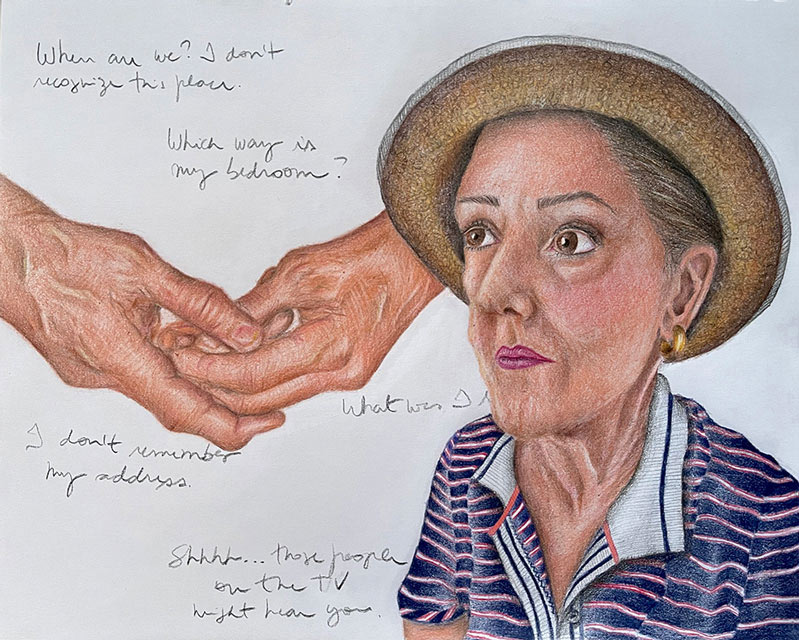 Where are we? I don't
recognize this place.
Which way is
my bedroom?
What was I
I don't remember
my address.
Shhhh... those people
on the TV
might hear you.